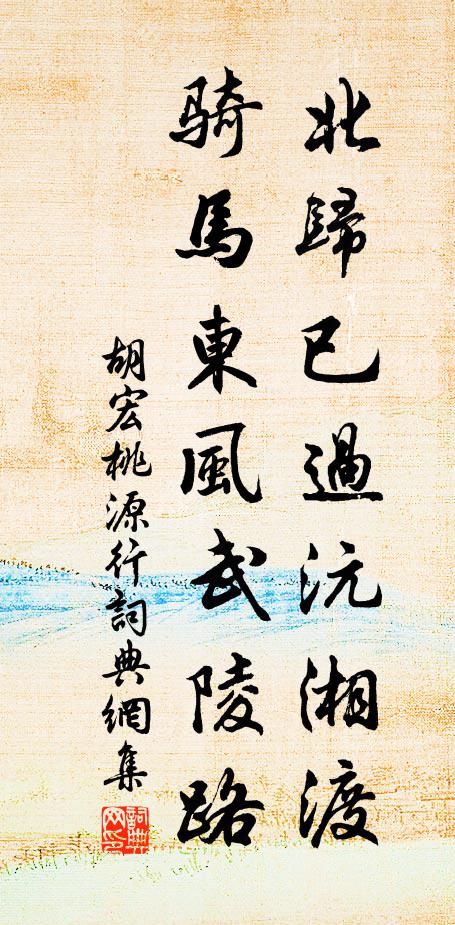 北歸已過沅湘渡
騎馬東風武陵路
胡宏桃源行詞典網集